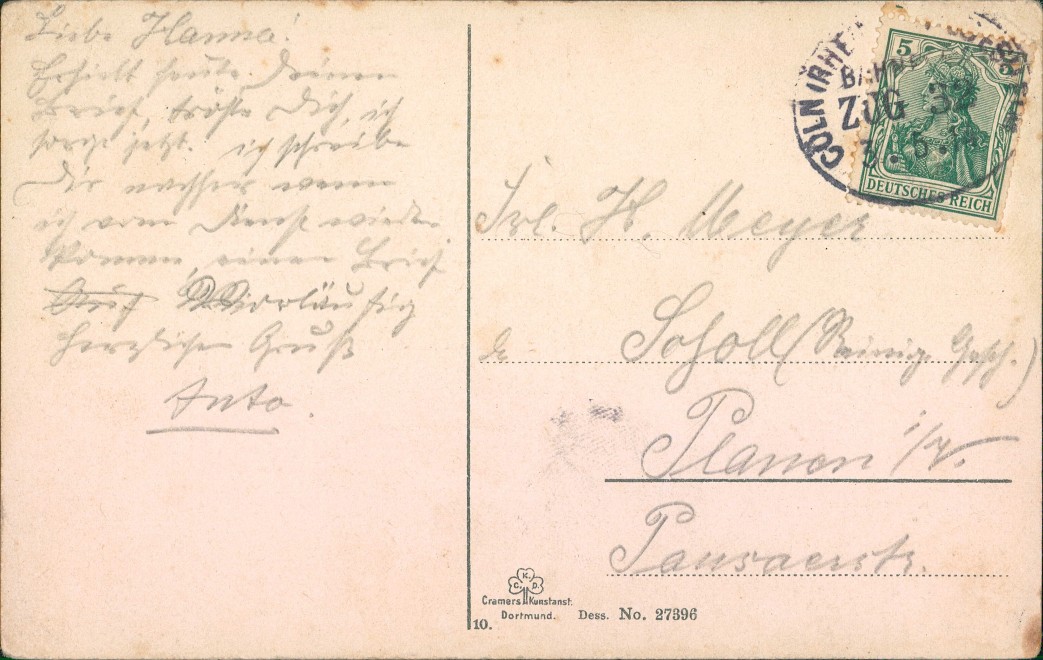 Liebe Hanna!
Erhielt heute Deinen
Brief, tröste Dich, ich
sorge jetzt. ich schreibe
Dir nachher wenn
ich vom Dienst wieder
komme, einen Brief
Vorläufig
herzlichen Gruß
Anto.
CÖLN (RHEIN)
BAHNPOST
ZUG
5
5
DEUTSCHES REICH
Frl. H. Meyer
Scholl (Reinig. Gesch.)
Plauen i/V.
Pausaerstr.
C. K. D.
Cramers Kunstanst.
Dortmund.
Dess. No. 27396
10.